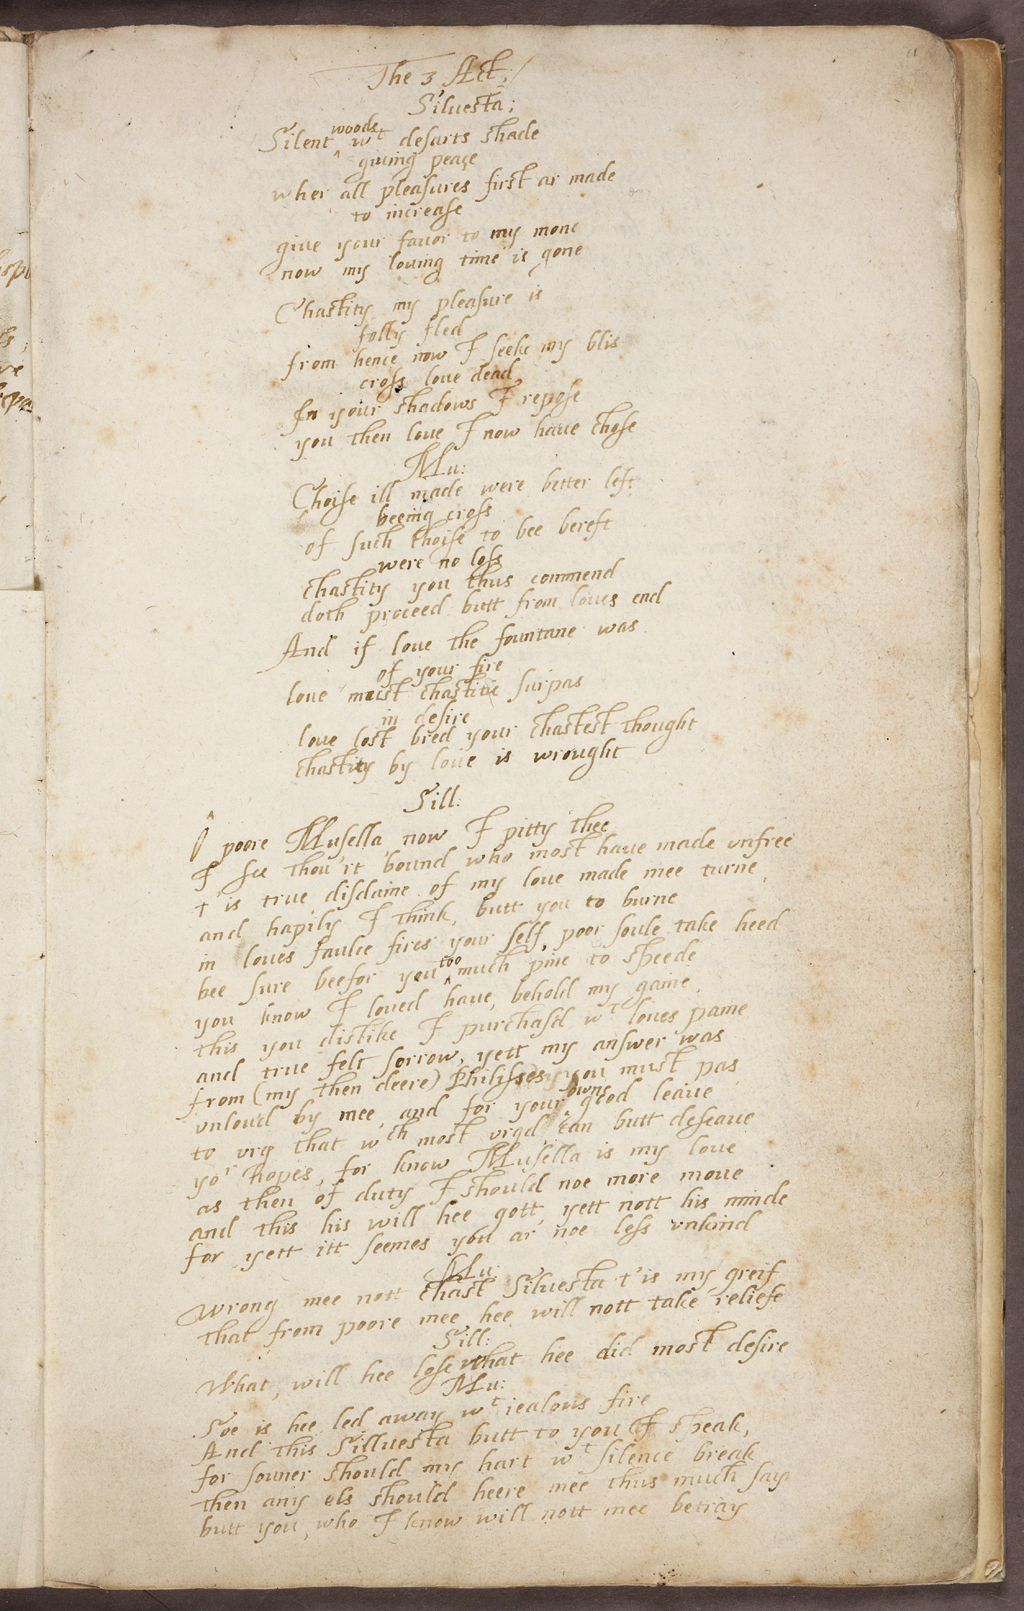 The 3 Act;
Siluesta;
Silent woods wt desarts shade
giuing peace
wher all pleasures first ar made
to increase
giue your fauor to my mone
now my louing time is gone
Chastity my pleasure is
folly fled
from hence now I seeke my blis
cross loue dead
In your shadows I repose
you then loue I now haue chose
Mu:
Choise ill made were better left
beeing cross
of such choise to bee bereft
were no loss
chastity you thus commend
doth proceed butt from loues end
And if loue the fountane was
of your fire
loue must chastitie surpas
in desire
loue lost bred your chastest thought
chastity by loue is wrought
Sill:
O poore Musella now I pitty thee
I see thou'rt bound who most haue made unfree
t'is true disdaine of my loue made mee turne,
and hapily I think, butt you to burne
in loues faulce fires your self, poor soule take heed
bee sure beefor you too much pine to speede
you know I loued haue, behold my gaine,
this you dislike I purchasd wt loues paine
and true felt sorrow, yett my answer was
from (my then deere) Philisses you must pas
vnlou'd by mee, and for your owne good leaue
to vrg that wch most vrgd, can butt deseaue
yor hopes, for know Musella is my loue
as then of duty I should noe more moue
and this his will hee gott, yett nott his minde
for yett itt seemes you ar noe less vnkind
Mu:
Wrong mee nott chast Siluesta t'is my greif
that from poore mee hee will nott take reliefe
Sill:
What, will hee lose what hee did most desire
Mu:
Soe is hee led away wt iealous fire
And this Silluesta butt to you I speak,
for souner should my hart wt silence break
then any els should heere mee thus much say
butt you, who I know will nott mee betray